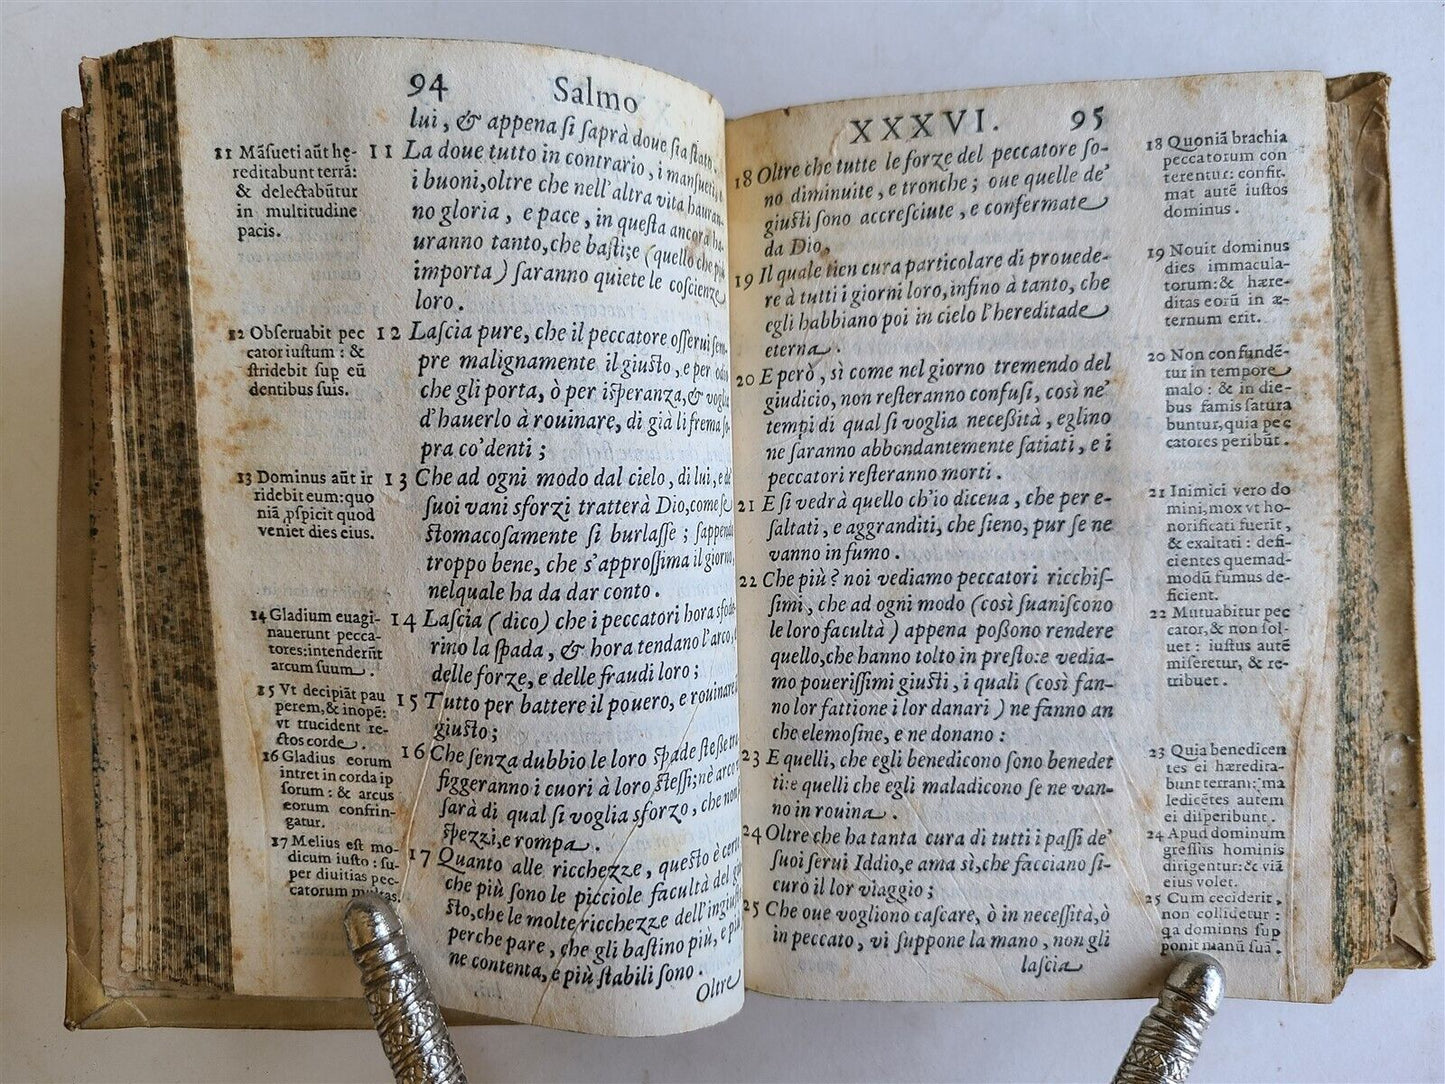 94 Salmo
lui, & appena si saprà doue sia stato.
11 Mãsueti aũt he-
reditabunt terrã:
& delectabũtur
in multitudine
pacis.
11 La doue tutto in contrario, i mansueti, e
i buoni, oltre che nell'altra vita hauran-
no gloria, e pace, in questa ancora ha-
uranno tanto, che basti; e (quello che più
importa) saranno quiete le coscienze
loro.
12 Obseruabit pec
cator iustum: &
stridebit sup eũ
dentibus suis.
12 Lascia pure, che il peccatore osserui sem-
pre malignamente il giusto, e per odio
che gli porta, ò per isperanza, & voglia
d'hauerlo à rouinare, di già li frema so-
pra co'denti;
13 Dominus aũt ir
ridebit eum: quo
niã pspicit quod
veniet dies eius.
13 Che ad ogni modo dal cielo, di lui, e de'
suoi vani sforzi tratterà Dio, come se
stomacosamente si burlasse; sappendo
troppo bene, che s'approssima il giorno,
nelquale ha da dar conto.
14 Gladium euagi-
nauerunt pecca-
tores: intenderũt
arcum suum.
14 Lascia (dico) che i peccatori hora sfode-
rino la spada, & hora tendano l'arco,
delle forze, e delle fraudi loro;
15 Vt decipiãt pau
perem, & inopẽ:
vt trucident re-
ctos corde.
15 Tutto per battere il pouero, e rouinare
giusto;
16 Gladius eorum
intret in corda ip
sorum: & arcus
eorum confrin-
gatur.
16 Che senza dubbio le loro spade stesse tra
figgeranno i cuori à loro stessi; nè arco
sarà di qual si voglia sforzo, che non
spezzi, e rompa.
17 Melius est mo-
dicum iusto: su-
per diuitias pec-
catorum multas.
17 Quanto alle ricchezze, questo è certo
che più sono le picciole facultà del giu
sto, che le molte ricchezze dell'ingiusto
perche pare, che gli bastino più, e più
ne contenta, e più stabili sono.
Oltre
XXXVI. 95
18 Oltre che tutte le forze del peccatore so-
no diminuite, e tronche; oue quelle de'
giusti sono accresciute, e confermate
da Dio,
18 Quoniã brachia
peccatorum con
terentur: confir-
mat autẽ iustos
dominus.
19 Il quale tien cura particolare di prouede-
re à tutti i giorni loro, infino à tanto, che
egli habbiano poi in cielo l'hereditade
eterna.
19 Nouit dominus
dies immacula-
torum: & hære-
ditas eorũ in æ-
ternum erit.
20 E però, sì come nel giorno tremendo del
giudicio, non resteranno confusi, così ne'
tempi di qual si voglia necessità, eglino
ne saranno abbondantemente satiati, e i
peccatori resteranno morti.
20 Non confundẽ-
tur in tempore
malo: & in die-
bus famis satura
buntur, quia pec
catores peribũt.
21 E si vedrà quello ch'io diceua, che per e-
saltati, e aggranditi, che sieno, pur se ne
vanno in fumo.
21 Inimici vero do
mini, mox vt ho-
norificati fuerit,
& exaltati: defi-
cientes quemad-
modũ fumus de-
ficient.
22 Che più? noi vediamo peccatori ricchis-
simi, che ad ogni modo (così suaniscono
le loro facultà) appena possono rendere
quello, che hanno tolto in presto: e vedia-
mo pouerissimi giusti, i quali (così fan-
no lor fattione i lor danari) ne fanno an
che elemosine, e ne donano:
22 Mutuabitur pec
cator, & non sol-
uet: iustus autẽ
miseretur, & re-
tribuet.
23 E quelli, che egli benedicono sono benedet
ti: e quelli che egli maladicono se ne van-
no in rouina.
23 Quia benedicen
tes ei hæredita-
bunt terram: ma
ledicẽtes autem
ei disperibunt.
24 Oltre che ha tanta cura di tutti i passi de'
suoi serui Iddio, e ama sì, che facciano si-
curo il lor viaggio;
24 Apud dominum
gressus hominis
dirigentur: & viã
eius volet.
25 Che oue vogliono cascare, ò in necessità, ò
in peccato, vi suppone la mano, non gli
25 Cum ceciderit,
non collidetur:
qa dominus sup
ponit manũ suã.
lascia